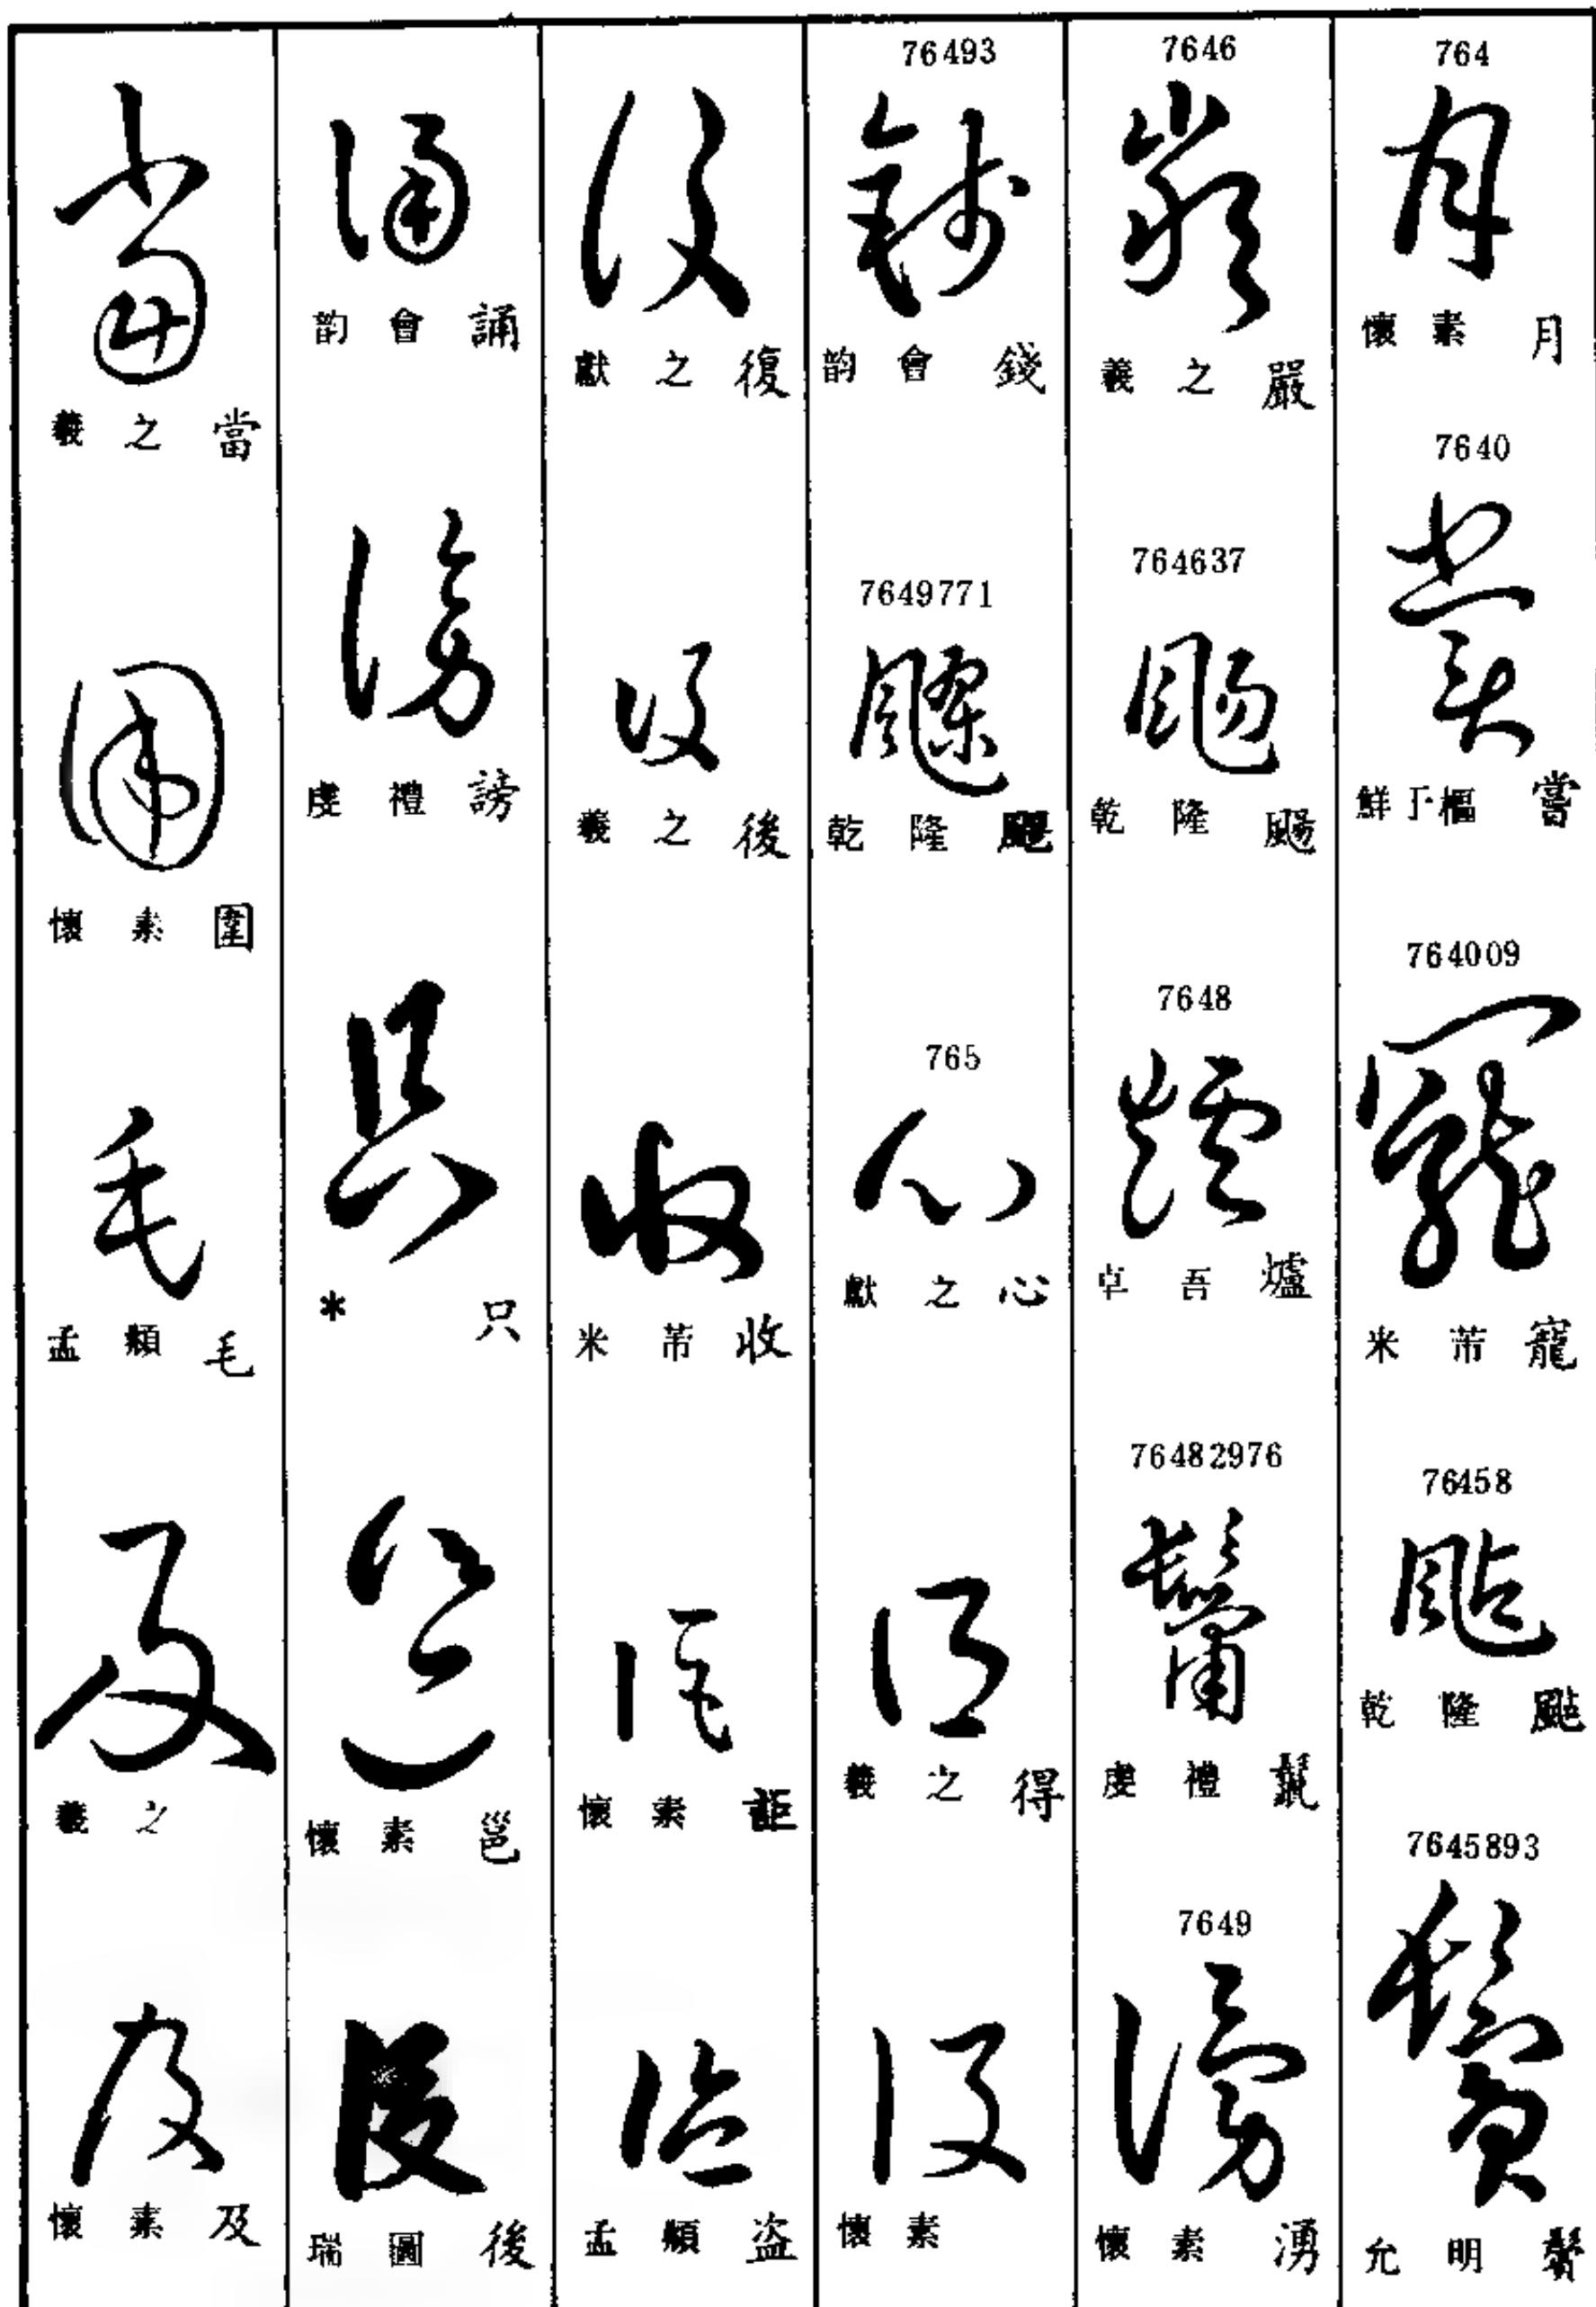 764
月
懷素 月
7640
嘗
鮮于樞 嘗
764009
寵
米芾 寵
76458
颭
乾隆 颭
7645893
鬢
允明 鬢
7646
嚴
羲之 嚴
764637
颺
乾隆 颺
7648
爐
卓吾 爐
76482976
鬣
虔禮 鬣
7649
湧
懷素 湧
76493
錢
韵會 錢
7649771
乾隆
765
心
獻之 心
得
羲之 得
得
懷素
復
獻之 復
後
羲之 後
收
米芾 收
詎
懷素 詎
盜
孟頫 盜
誦
韵會 誦
謗
虔禮 謗
只
* 只
邕
懷素 邕
後
瑞圖 後
當
羲之 當
圍
懷素 圍
毛
孟頫 毛
及
羲之
及
懷素 及